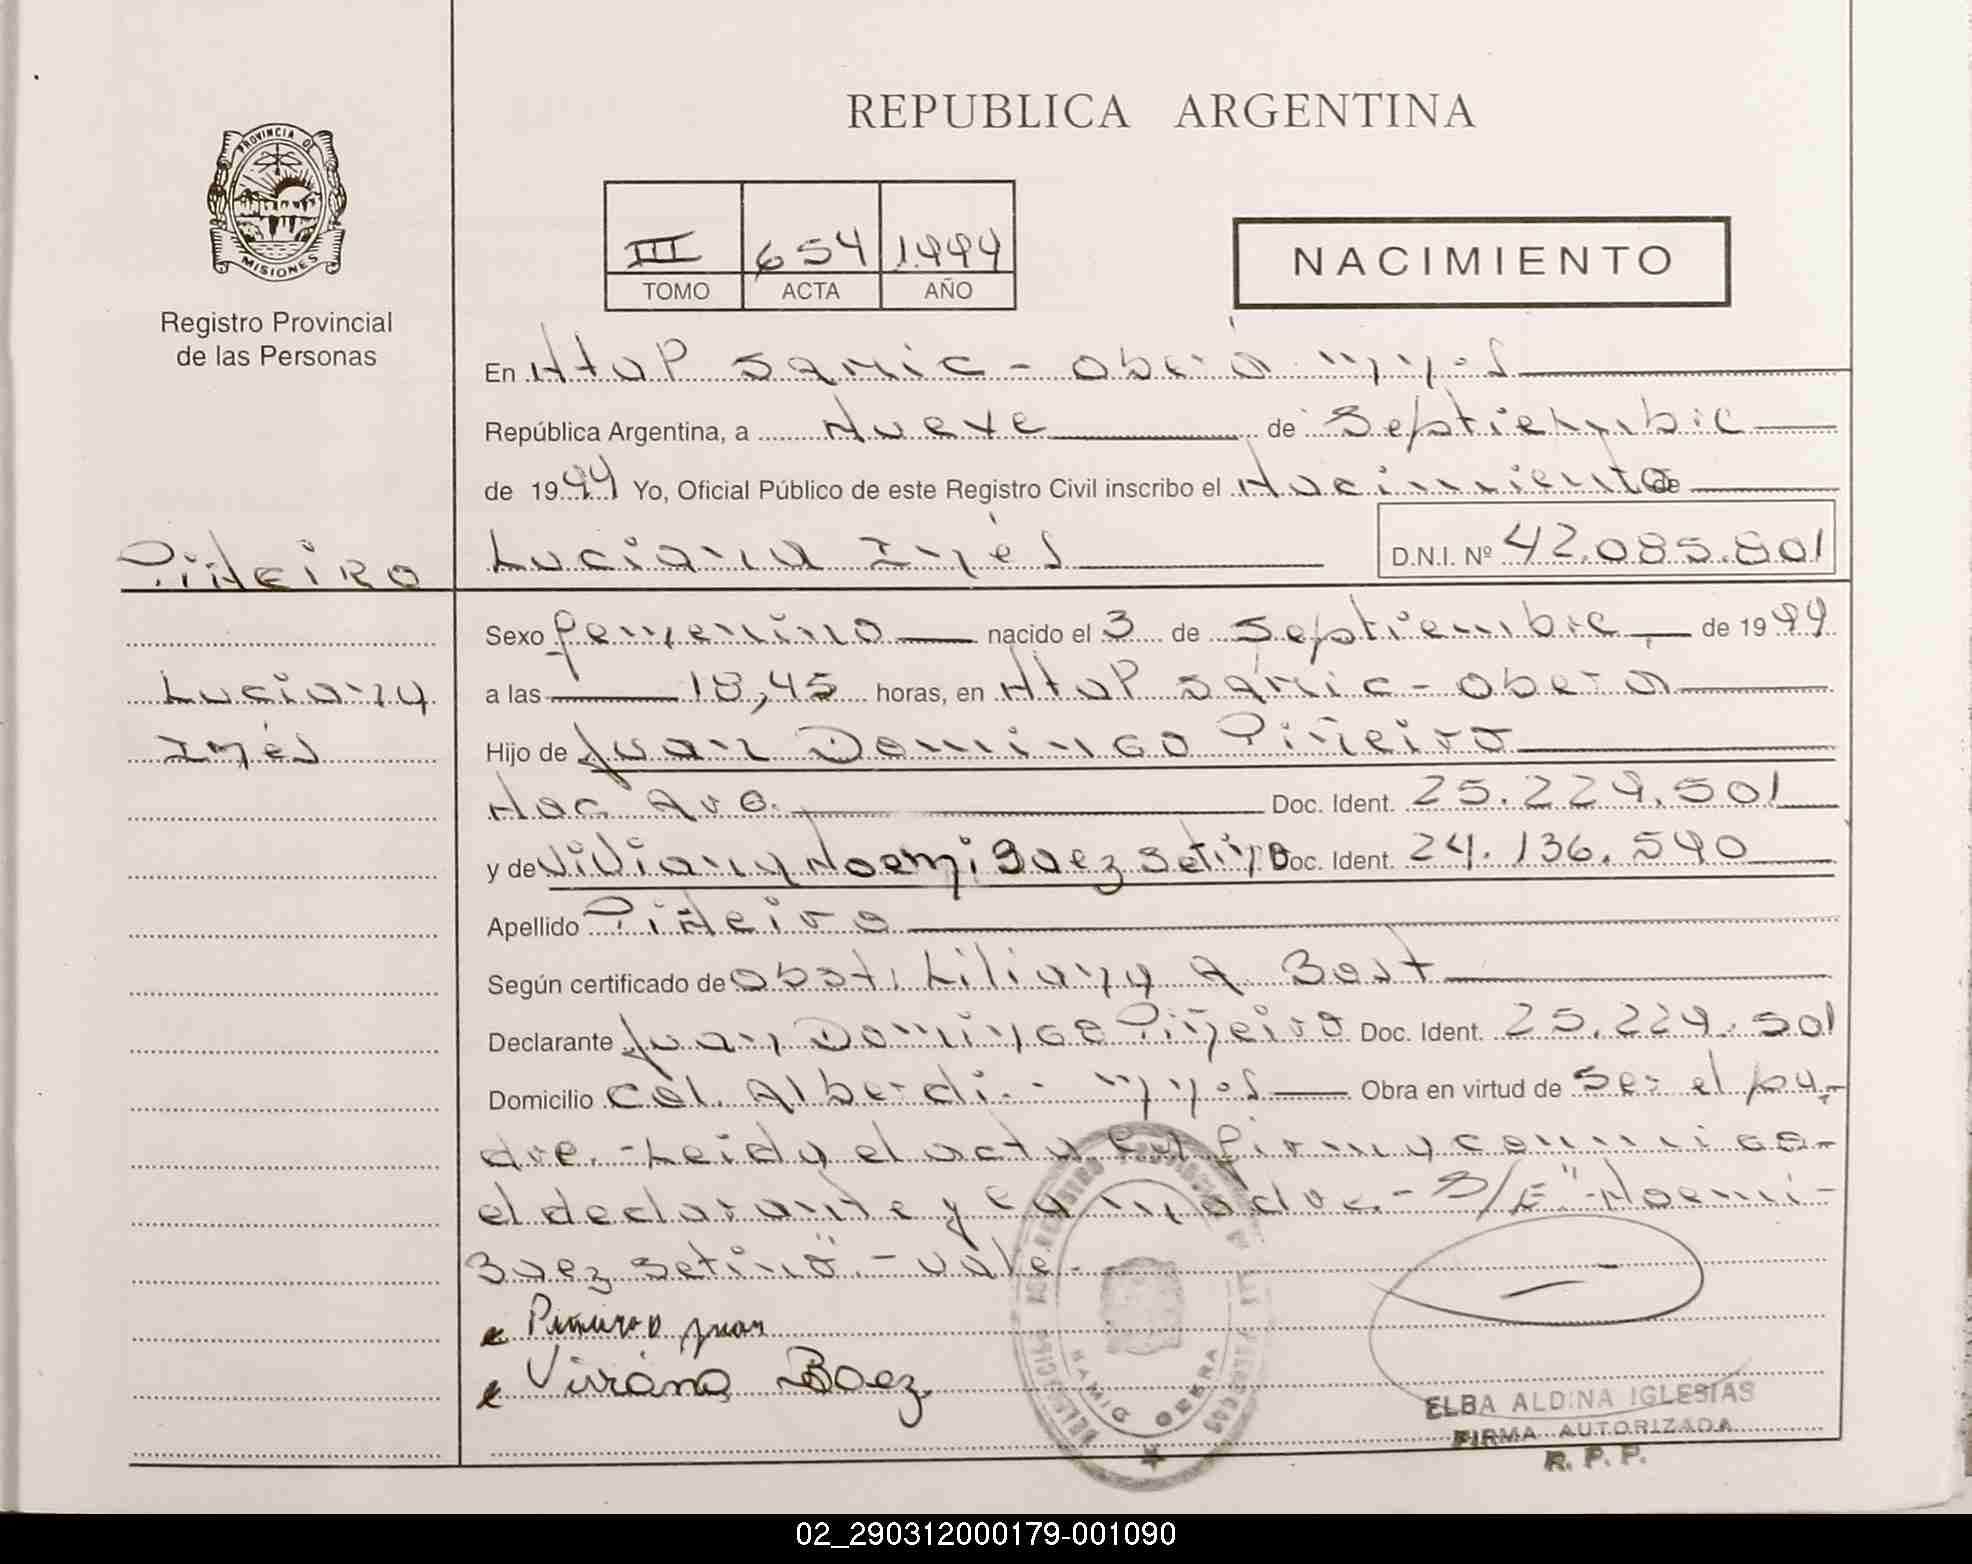 REPUBLICA ARGENTINA
PROVINCIA DE
MISIONES
Registro Provincial
de las Personas
III 654 1.999
TOMO ACTA AÑO
NACIMIENTO
En Htap Samic - Oberá Mnes
República Argentina, a Nueve de Septiembre
de 1999 Yo, Oficial Público de este Registro Civil inscribo el Nacimiento de
Piñeiro
Luciana Inés D.N.I. Nº 42.085.801
Sexo femenino nacido el 3 de Septiembre de 1999
Luciana
a las 18,45 horas, en Htap Samic - Oberá
Inés
Hijo de Juan Domingo Piñeiro
Nac. Arg. Doc. Ident. 25.229.501
y de Viviana Noemi Baez Setino Doc. Ident. 24.136.590
Apellido Piñeiro
Según certificado de Obst. Liliana A. Bast
Declarante Juan Domingo Piñeiro Doc. Ident. 25.229.501
Domicilio Col. Alberdi - Mnes Obra en virtud de ser el pa-
dre. - Leida el acta la firma conmigo
el declarante y la madre. - S/E "Noemi
Baez Setino" - vale.
Piñeiro Juan
Viviana Baez
SAMIC OBERA
ELBA ALDINA IGLESIAS
FIRMA AUTORIZADA
R. P. P.
02_290312000179-001090